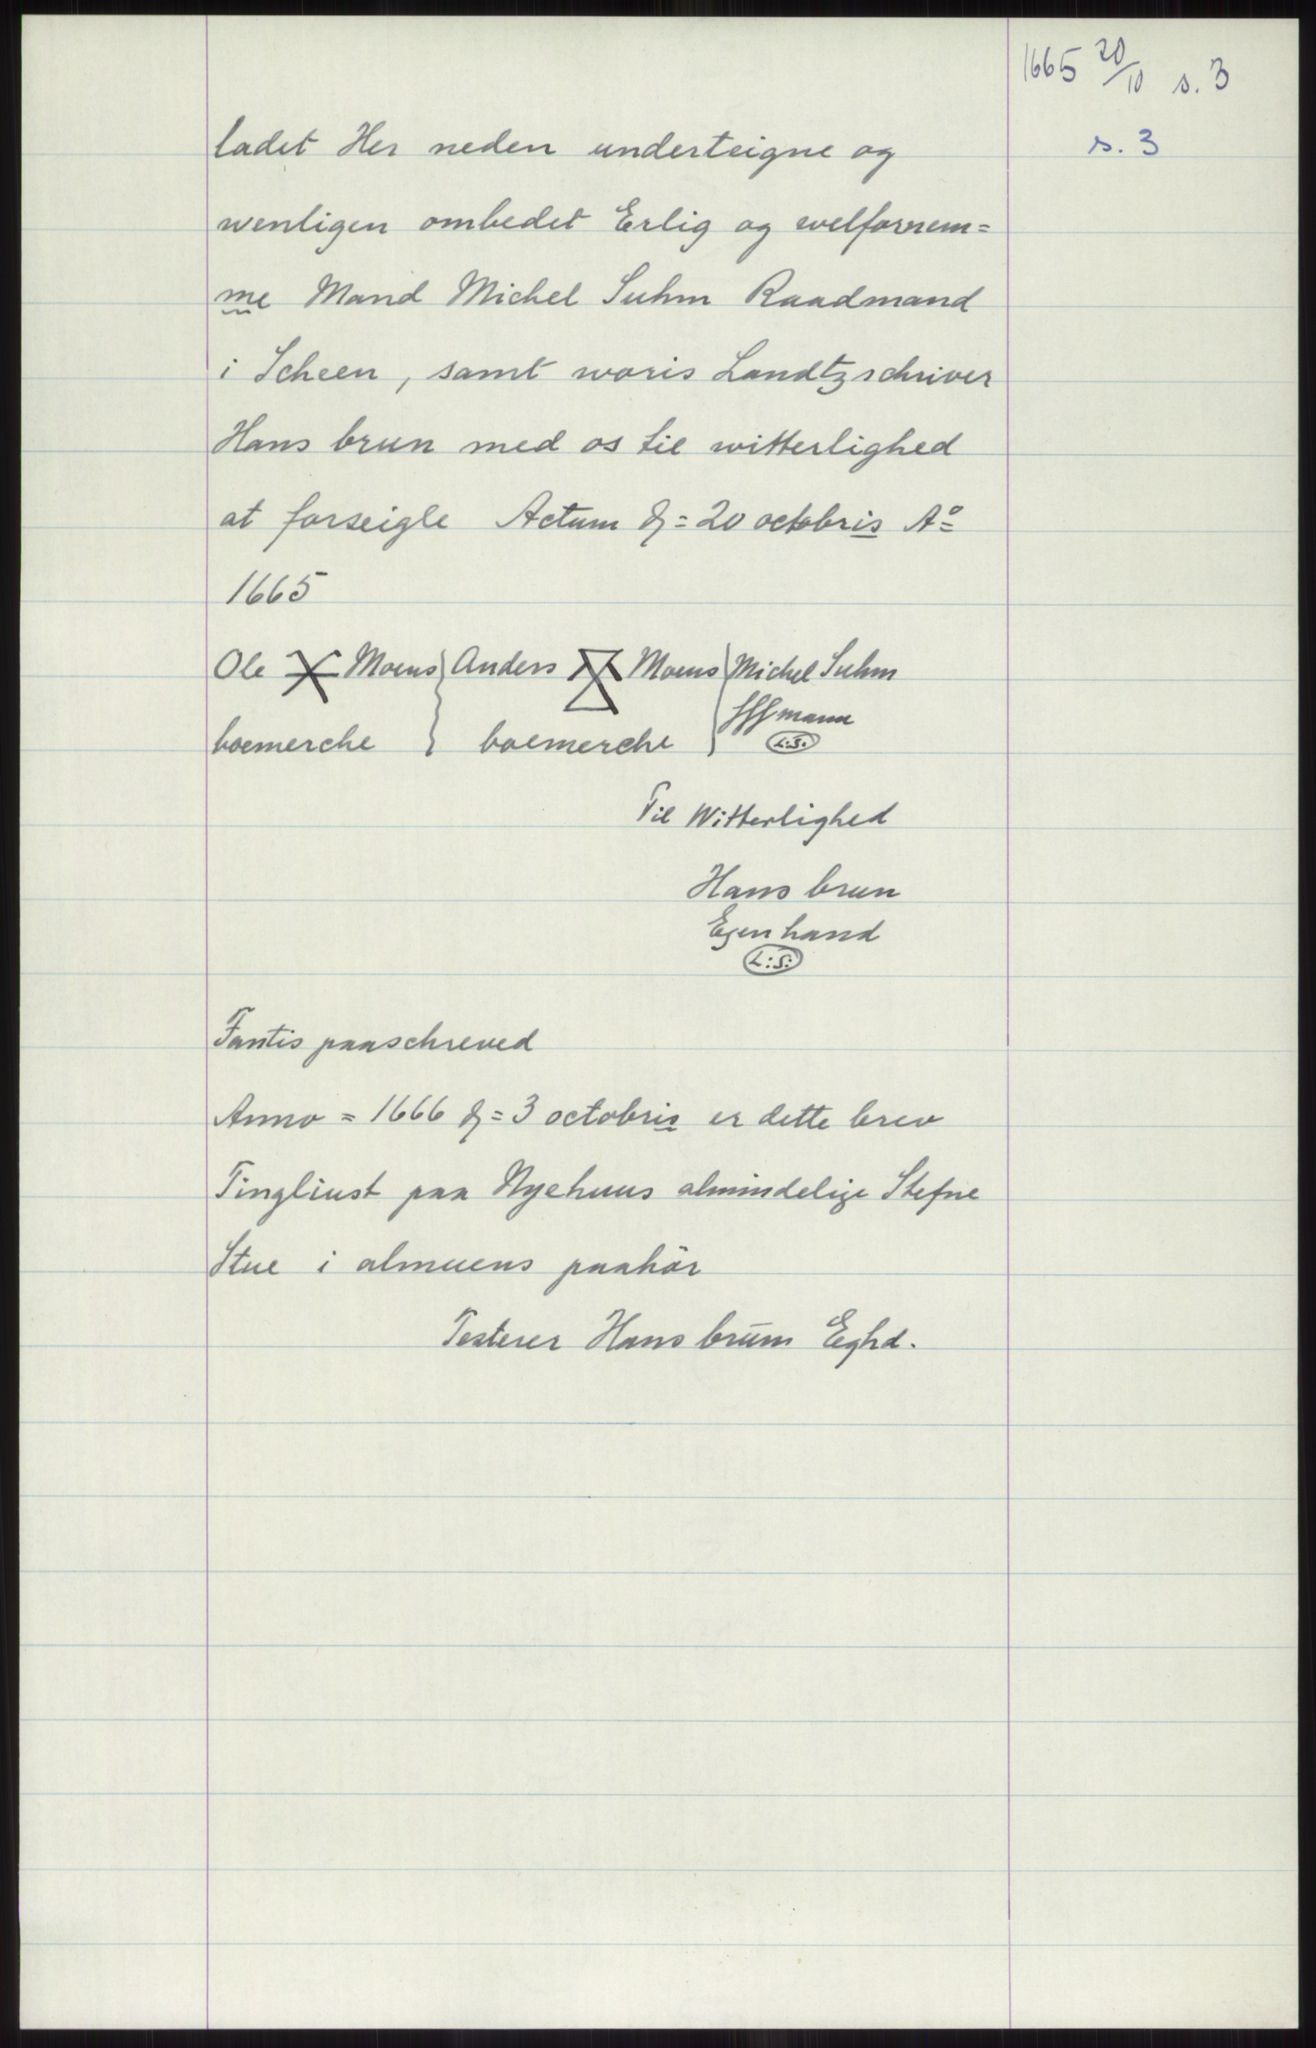 1665 20/10 s. 3
s. 3
ladet Her neden underteigne og
wenligen ombedet Erlig og welfornem=
me Mand Michel Suhm Raadmand
i Scheen, samt woris Landtzschriver
Hans brun med os til witterlighed
at forseigle Actum = 20 octobris Aº
1665
Ole Moens Anders Moens Michel Suhm
mann
boemerche boemerche L:S:
Til Witterlighed
Hans brun
Egen hand
L:S:
Fantis paaschreved
Anno = 1666 = 3 octobris er dette brev
Tingliust paa Nyehuus almindelige Stefne
Stue i almuens paahör
Testerer Hans brūm Eghd.